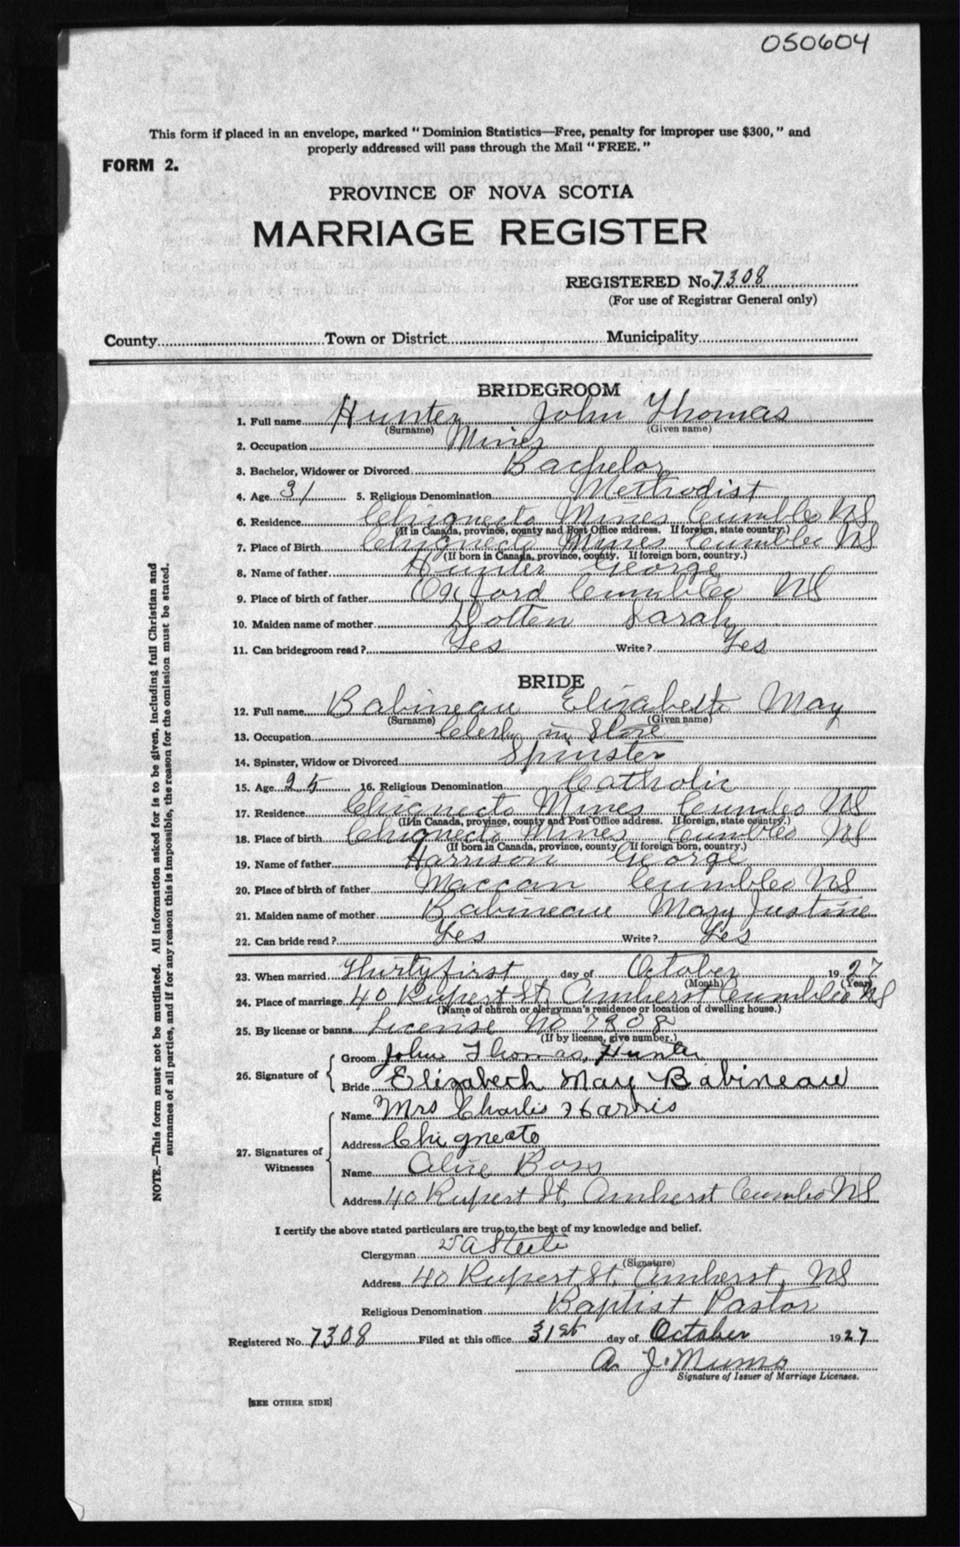 050604
This form if placed in an envelope, marked "Dominion Statistics—Free, penalty for improper use $300," and
properly addressed will pass through the Mail "FREE."
FORM 2.
PROVINCE OF NOVA SCOTIA
MARRIAGE REGISTER
REGISTERED No. 7308
(For use of Registrar General only)
County Town or District Municipality
BRIDEGROOM
1. Full name Hunter John Thomas
(Surname) (Given name)
2. Occupation Miner
3. Bachelor, Widower or Divorced Bachelor
4. Age 31 5. Religious Denomination Methodist
6. Residence Chignecto Mines Cumb Co NS
(If in Canada, province, county and Post Office address. If foreign, state country.)
7. Place of Birth Chignecto Mines Cumb Co NS
(If born in Canada, province, county. If foreign born, country.)
8. Name of father Hunter George
9. Place of birth of father Oxford Cumb Co NS
10. Maiden name of mother Dotten Sarah
11. Can bridegroom read? Yes Write? Yes
BRIDE
12. Full name Babineau Elizabeth May
(Surname) (Given name)
13. Occupation Clerk in Store
14. Spinster, Widow or Divorced Spinster
15. Age 25 16. Religious Denomination Catholic
17. Residence Chignecto Mines Cumb Co NS
(If in Canada, province, county and Post Office address. If foreign, state country.)
18. Place of birth Chignecto Mines Cumb Co NS
(If born in Canada, province, county If foreign born, country.)
19. Name of father Harrison George
20. Place of birth of father Maccan Cumb Co NS
21. Maiden name of mother Babineau Mary Justine
22. Can bride read? Yes Write? Yes
23. When married Thirty first day of October 1927
(Month) (Year)
24. Place of marriage 40 Rupert St, Amherst Cumb Co NS
(Name of church or clergyman's residence or location of dwelling house.)
25. By license or banns License No 7308
(If by license, give number.)
26. Signature of
Groom John Thomas Hunter
Bride Elizabeth May Babineau
27. Signatures of Witnesses
Name Mrs Charlis Harris
Address Chignecto
Name Alice Ross
Address 40 Rupert St, Amherst Cumb Co NS
I certify the above stated particulars are true to the best of my knowledge and belief.
Clergyman Steele
(Signature)
Address 40 Rupert St. Amherst, NS
Religious Denomination Baptist Pastor
Registered No. 7308 Filed at this office 31st day of October 1927
A. J.
Signature of Issuer of Marriage Licenses.
[SEE OTHER SIDE]
NOTE.—This form must not be mutilated. All information asked for is to be given, including full Christian and
surnames of all parties, and if for any reason this is impossible, the reason for the omission must be stated.